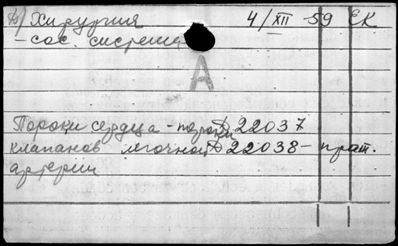 В) Хирургия 4/XII-59 ЕК
-сос. система
А
Пороки сердца - пороки Д 22037
клапанов легочной Д 22038 - прат.
артерии